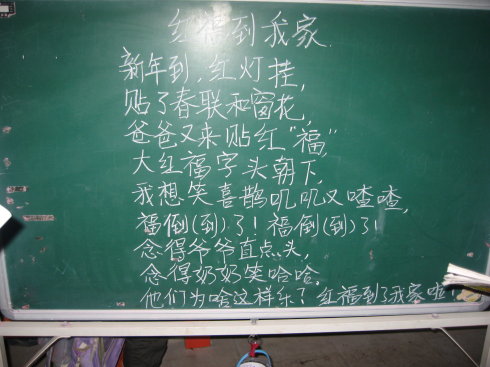 红福到我家
新年到，红灯挂，
贴了春联和窗花，
爸爸又来贴红“福”
大红福字头朝下，
我想笑喜鹊叽叽又喳喳，
福倒(到)了！福倒(到)了！
念得爷爷直点头，
念得奶奶笑哈哈。
他们为啥这样乐？红福到了我家啦